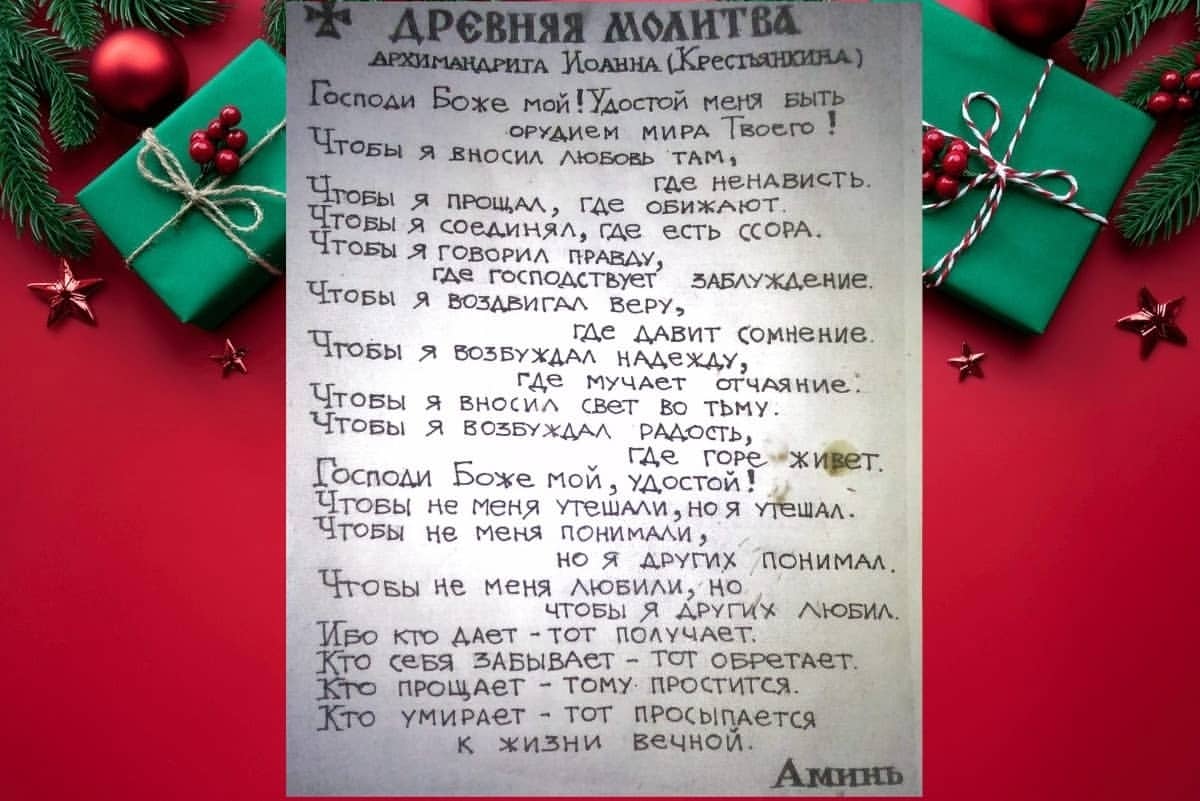 ДРЕВНЯЯ МОЛИТВА
АРХИМАНДРИТА ИОАННА (КРЕСТЬЯНКИНА)
Господи Боже мой! Удостой меня быть
орудием мира Твоего!
Чтобы я вносил любовь там,
где ненависть.
Чтобы я прощал, где обижают.
Чтобы я соединял, где есть ссора.
Чтобы я говорил правду,
где господствует заблуждение.
Чтобы я воздвигал веру,
где давит сомнение.
Чтобы я возбуждал надежду,
где мучает отчаяние.
Чтобы я вносил свет во тьму.
Чтобы я возбуждал радость,
где горе живет.
Господи Боже мой, удостой!
Чтобы не меня утешали, но я утешал.
Чтобы не меня понимали,
но я других понимал.
Чтобы не меня любили, но
чтобы я других любил.
Ибо кто дает - тот получает.
Кто себя забывает - тот обретает.
Кто прощает - тому простится.
Кто умирает - тот просыпается
к жизни вечной.
Аминь